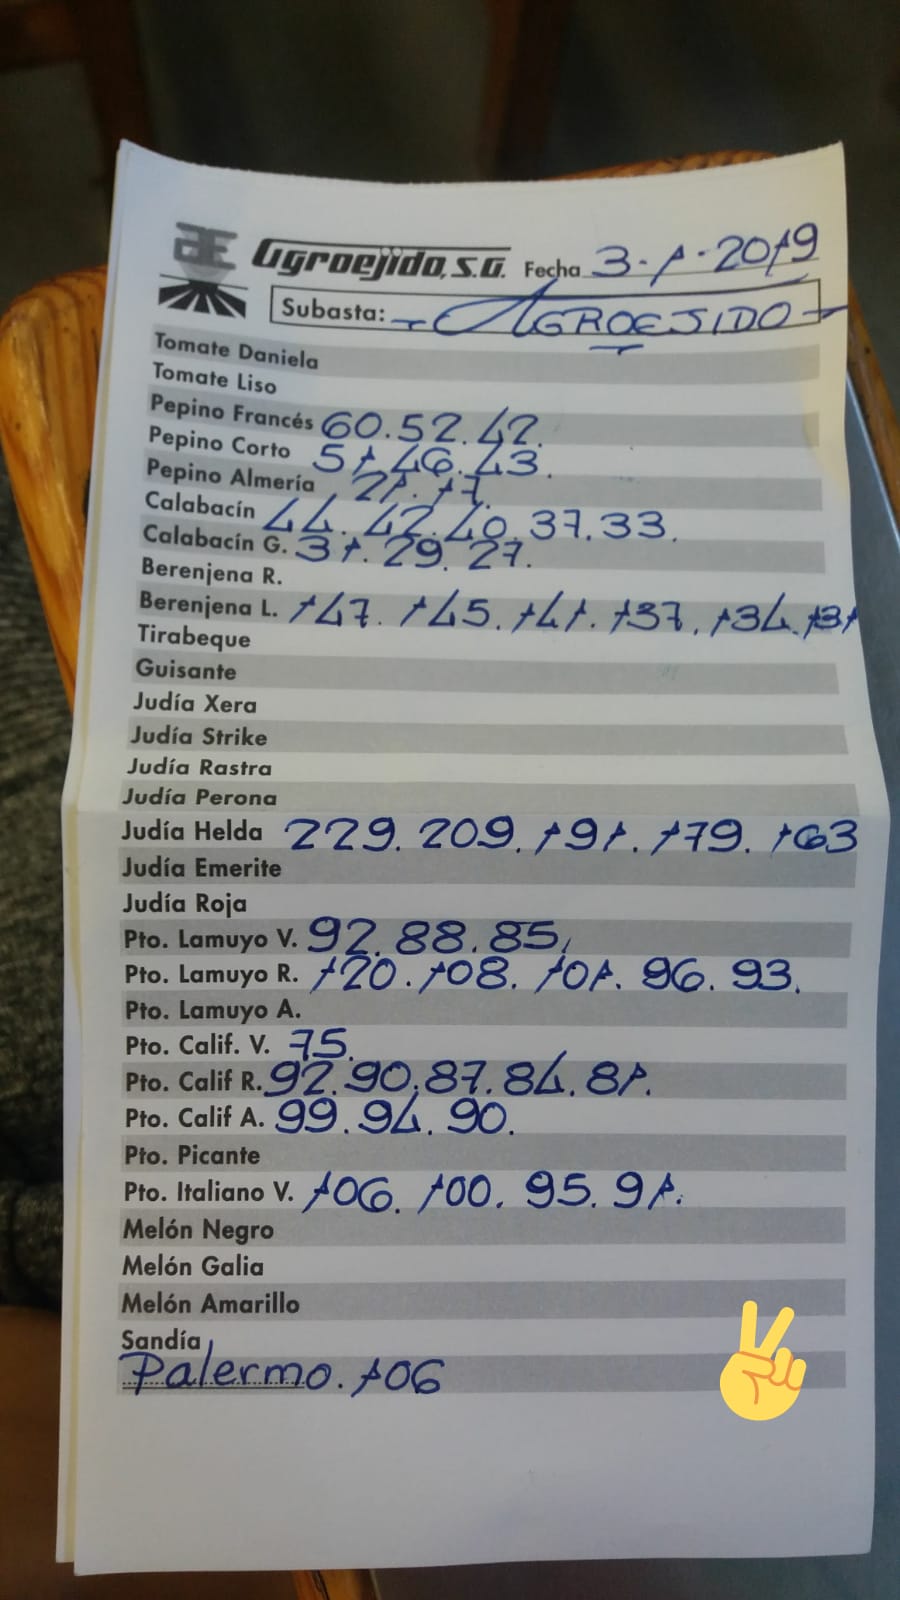 Agroejido, S.A. Fecha 3-1-2019
Subasta: - AGROEJIDO -
Tomate Daniela
Tomate Liso
Pepino Francés 60.52.42.
Pepino Corto 51.46.43.
Pepino Almería 21.17.
Calabacín 44.42.40.37.33.
Calabacín G. 31.29.27.
Berenjena R.
Berenjena L. 147.145.141.137.134.131
Tirabeque
Guisante
Judía Xera
Judía Strike
Judía Rastra
Judía Perona
Judía Helda 229.209.191.179.163
Judía Emerite
Judía Roja
Pto. Lamuyo V. 92.88.85.
Pto. Lamuyo R. 120.108.101.96.93.
Pto. Lamuyo A.
Pto. Calif. V. 75.
Pto. Calif R. 92.90.87.84.81.
Pto. Calif A. 99.94.90.
Pto. Picante
Pto. Italiano V. 106.100.95.91.
Melón Negro
Melón Galia
Melón Amarillo
Sandía
Palermo.106